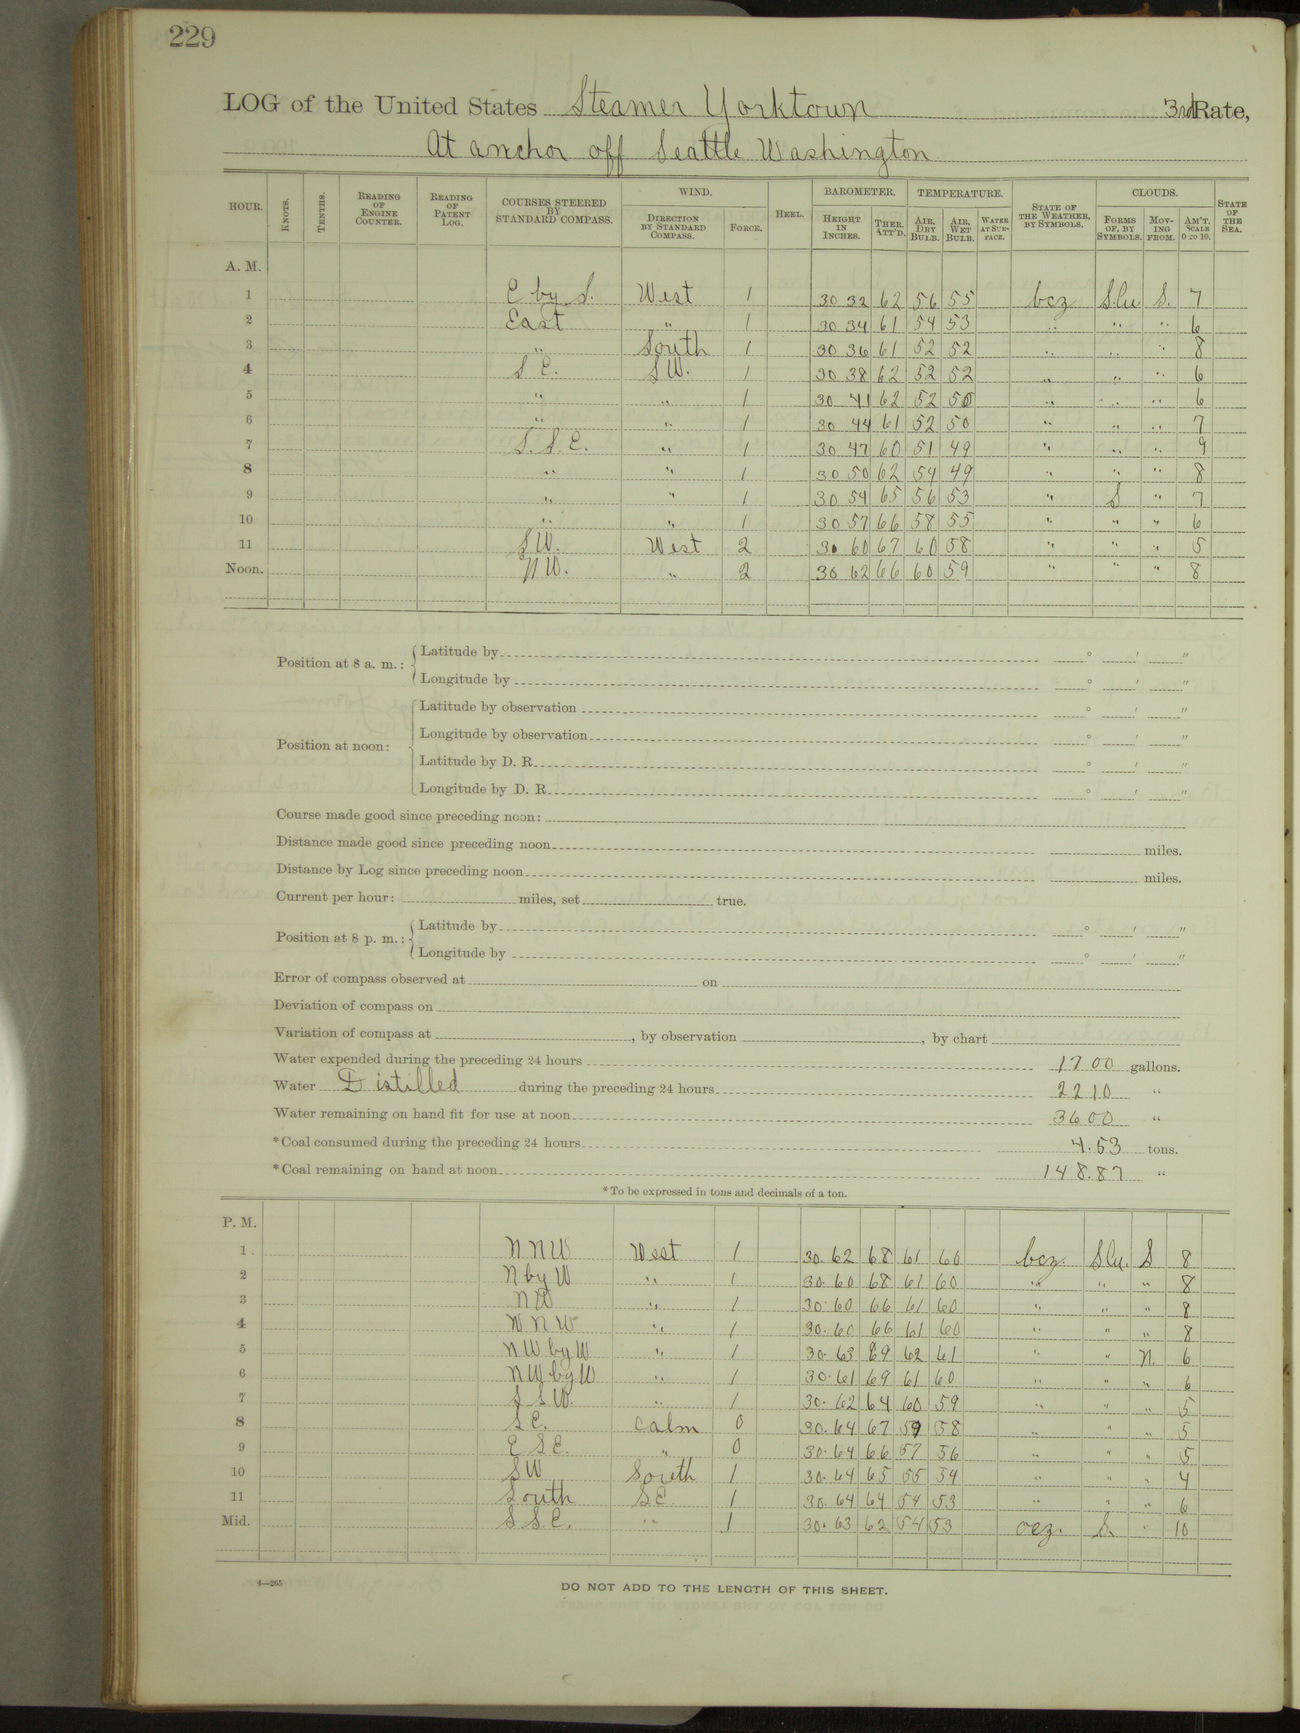 229
LOG of the United States Steamer Yorktown 3rd Rate,
At anchor off Seattle Washington
HOUR. KNOTS. TENTHS. READING OF ENGINE COUNTER. READING OF PATENT LOG. COURSES STEERED BY STANDARD COMPASS. WIND. DIRECTION BY STANDARD COMPASS. FORCE. HEEL. BAROMETER. HEIGHT IN INCHES. THER. ATT'D. TEMPERATURE. AIR, DRY BULB. AIR, WET BULB. WATER AT SURFACE. STATE OF THE WEATHER, BY SYMBOLS. CLOUDS. FORMS OF, BY SYMBOLS. MOVING FROM. AM'T. SCALE 0 TO 10. STATE OF THE SEA.
A. M.
1 E by S. West 1 30 32 62 56 55 bcz S.Cu S. 7
2 East " 1 30 34 61 54 53 " " " 6
3 " South 1 30 36 61 52 52 " " " 8
4 S E. S W. 1 30 38 62 52 52 " " " 6
5 " " 1 30 41 62 52 50 " " " 6
6 " " 1 30 44 61 52 50 " " " 7
7 S. S. E. " 1 30 47 60 51 49 " " " 9
8 " " 1 30 50 62 54 49 " " " 8
9 " " 1 30 54 65 56 53 " S " 7
10 " " 1 30 57 66 58 55 " " " 6
11 S W. West 2 30 60 67 60 58 " " " 5
Noon. N W. " 2 30 62 66 60 59 " " " 8
Position at 8 a. m.: Latitude by ° ' "
Longitude by ° ' "
Position at noon: Latitude by observation ° ' "
Longitude by observation ° ' "
Latitude by D. R. ° ' "
Longitude by D. R. ° ' "
Course made good since preceding noon:
Distance made good since preceding noon miles.
Distance by Log since preceding noon miles.
Current per hour: miles, set true.
Position at 8 p. m.: Latitude by ° ' "
Longitude by ° ' "
Error of compass observed at on
Deviation of compass on
Variation of compass at , by observation , by chart
Water expended during the preceding 24 hours 1700 gallons.
Water Distilled during the preceding 24 hours 2210 "
Water remaining on hand fit for use at noon 3600 "
*Coal consumed during the preceding 24 hours 4.53 tons.
*Coal remaining on hand at noon 148.87 "
*To be expressed in tons and decimals of a ton.
P. M.
1 N N W West 1 30.62 68 61 60 bcz. S Cu. S 8
2 N by W " 1 30.60 68 61 60 " " " 8
3 N W " 1 30.60 66 61 60 " " " 8
4 W N W " 1 30.60 66 61 60 " " " 8
5 N W by W " 1 30.63 69 62 61 " " N. 6
6 N W by W " 1 30.61 69 61 60 " " " 6
7 S S W. " 1 30.62 64 60 59 " " " 5
8 S E. calm 0 30.64 67 59 58 " " " 5
9 E S E. " 0 30.64 66 57 56 " " " 5
10 S W South 1 30.64 65 55 54 " " " 4
11 South S E. 1 30.64 64 54 53 " " " 6
Mid. S S. E. " 1 30.63 62 54 53 ocz. S. " 10
4—265
DO NOT ADD TO THE LENGTH OF THIS SHEET.